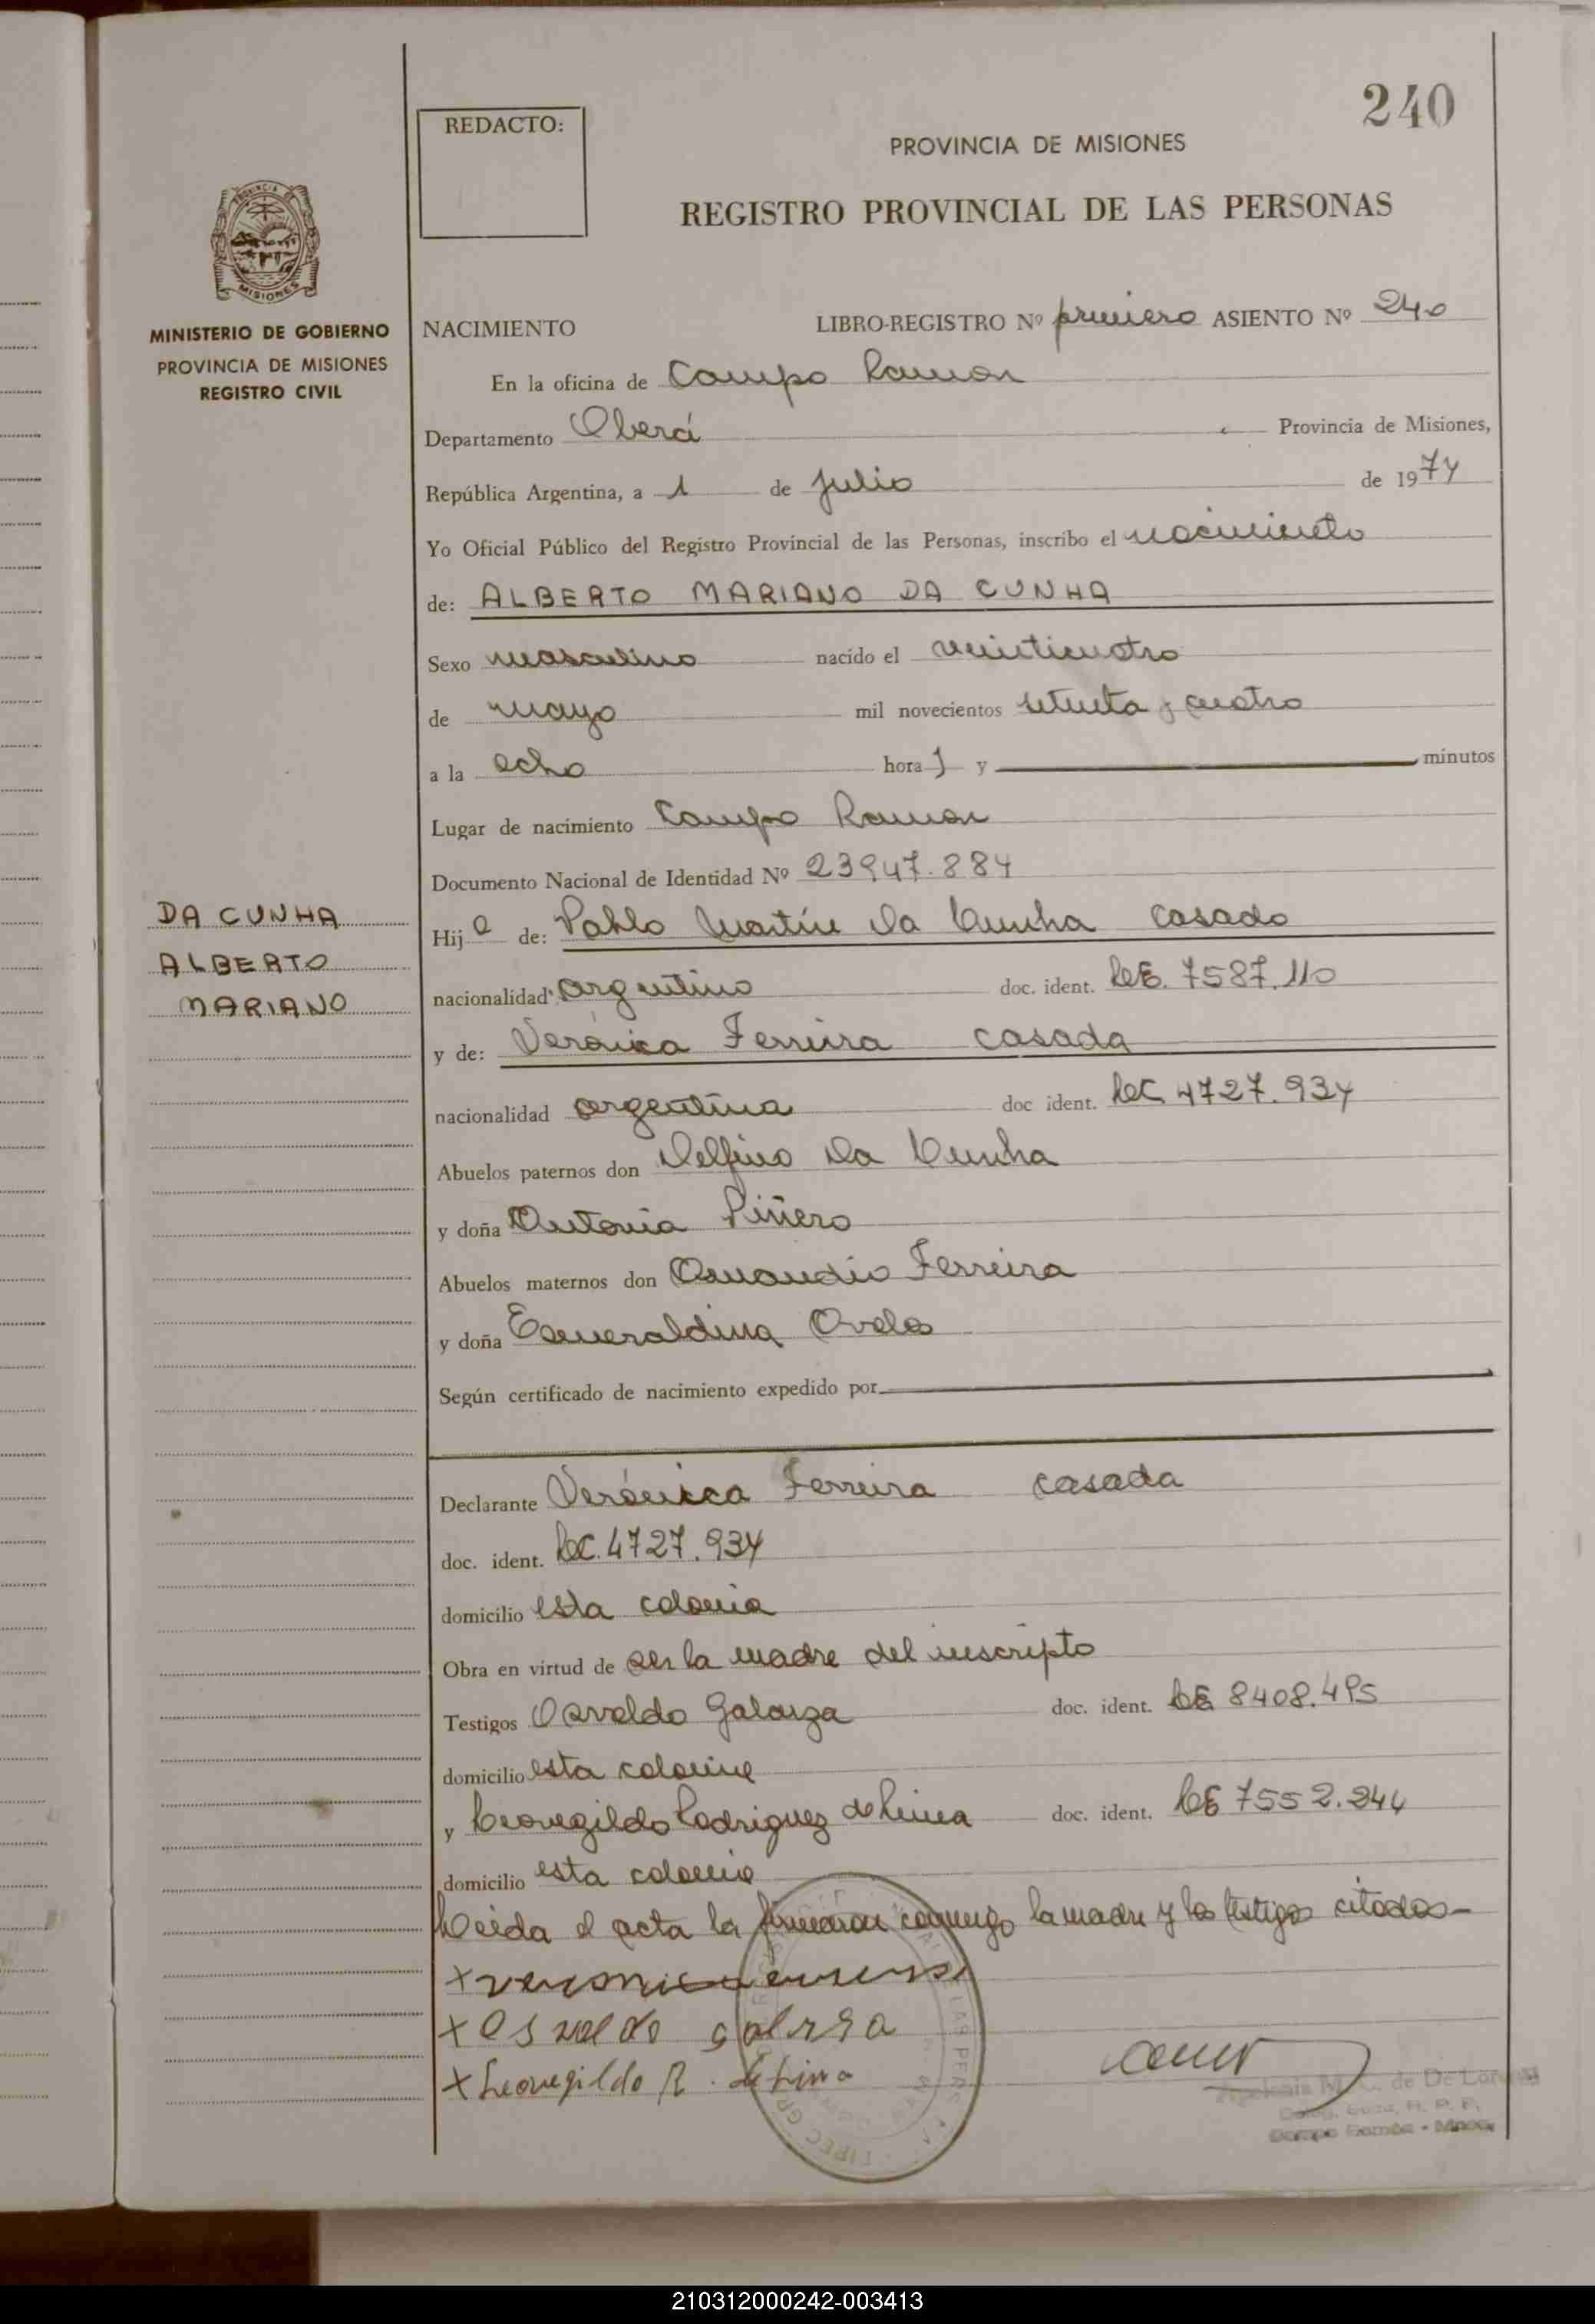 240
REDACTO:
PROVINCIA DE MISIONES
REGISTRO PROVINCIAL DE LAS PERSONAS
PROVINCIA DE MISIONES
MINISTERIO DE GOBIERNO
PROVINCIA DE MISIONES
REGISTRO CIVIL
NACIMIENTO LIBRO-REGISTRO Nº primero ASIENTO Nº 240
En la oficina de Campo Ramon
Departamento Oberá Provincia de Misiones,
República Argentina, a 1 de Julio de 1974
Yo Oficial Público del Registro Provincial de las Personas, inscribo el nacimiento
de: ALBERTO MARIANO DA CUNHA
Sexo masculino nacido el veinticuatro
de mayo mil novecientos setenta y cuatro
a la ocho hora s y minutos
Lugar de nacimiento Campo Ramon
Documento Nacional de Identidad Nº 23947.884
DA CUNHA
ALBERTO
MARIANO
Hij o de: Pablo Martín Da Cunha casado
nacionalidad argentino doc. ident. LE. 7587.110
y de: Verónica Ferreira casada
nacionalidad argentina doc ident. LC 4727.934
Abuelos paternos don Delfino Da Cunha
y doña Antonia Piñero
Abuelos maternos don Ferreira
y doña Esmeraldina
Según certificado de nacimiento expedido por
Declarante Verónica Ferreira casada
doc. ident. LC. 4727.934
domicilio esta colonia
Obra en virtud de ser la madre del inscripto
Testigos Osvaldo Galarza doc. ident. LE 8408.495
domicilio esta colonia
y Leovegildo Rodriguez de Lima doc. ident. LE 7552.244
domicilio esta colonia
Leida el acta la firmaron conmigo la madre y los testigos citados
x veronica
x osvaldo
x Leovegildo R. de Lima
M. C. de De
Campo Ramón - Mnes.
210312000242-003413